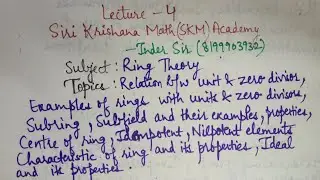 Lecture - 4
Siri Krishana Math (SKM) Academy
- Inder Sir (8199903932)
Subject: Ring Theory
Topics: Relation b/w unit & zero divisor,
Examples of rings with units & zero divisors,
Subring, Subfield and their examples, properties,
Centre of ring, Idempotent, Nilpotent elements
Characteristic of ring and its properties, Ideal
and its properties.